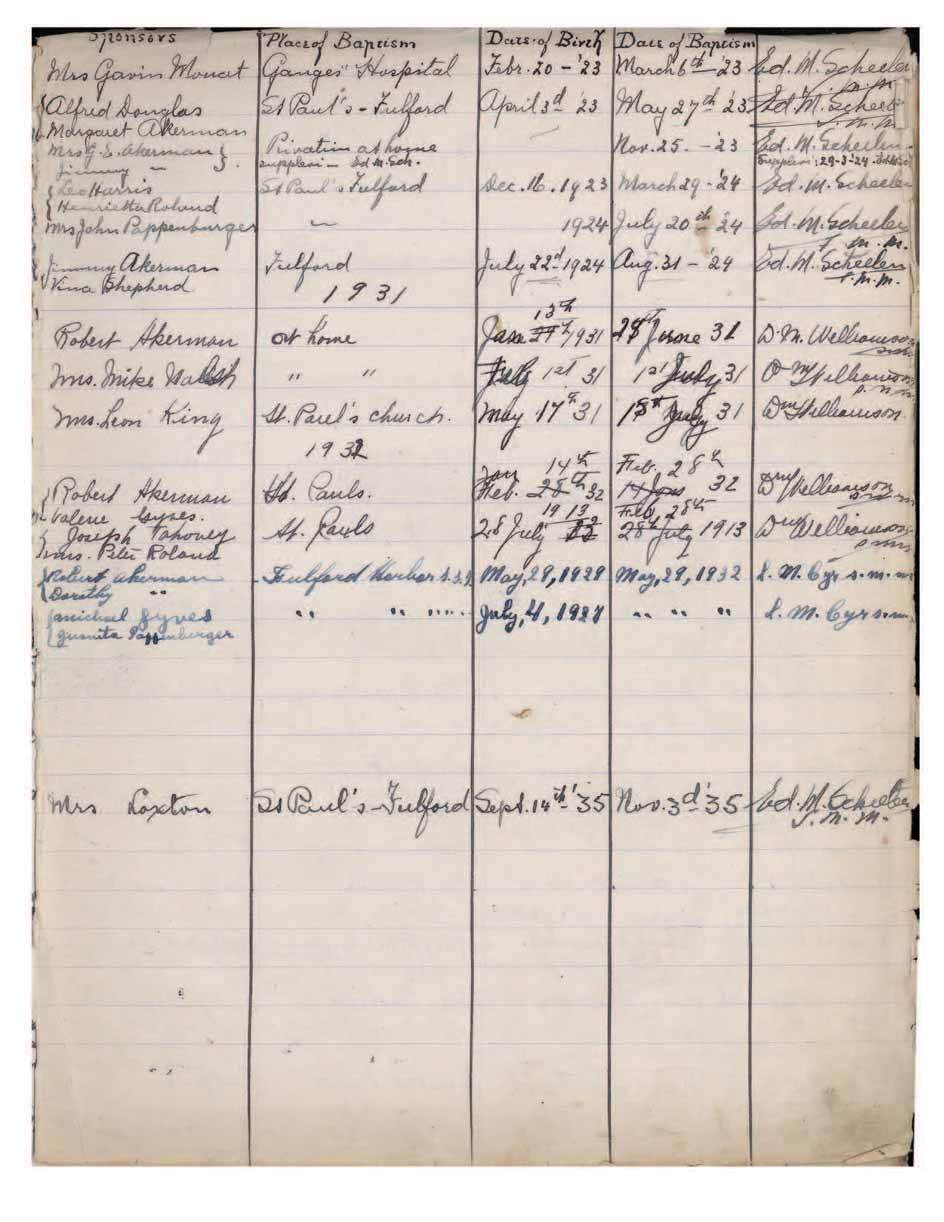 Sponsors Place of Baptism Date of Birth Date of Baptism
Mrs Gavin Mouat Ganges' Hospital Febr. 20 - '23 March 6th - '23 Ed. M. Scheelen
s. m. m.
Alfred Douglas St Paul's - Fulford April 3d '23 May 27th '23 Ed. M. Scheelen
Margaret Akerman s. m. m.
Mrs G. E. Akerman Privatim at home Nov. 25. - '23 Ed. M. Scheelen
Jimmy " supplevi - Ed. M. Sch. Supplevi, 29-3-'24
Leo Harris St Paul's Fulford Dec. 16. 1923 March 29 - '24 Ed. M. Scheelen
Henrietta Roland
Mrs John Pappenburger " 1924 July 20th '24 Ed. M. Scheelen
s. m. m.
Jimmy Akerman Fulford July 22d 1924 Aug. 31 - '24 Ed. M. Scheelen
Vina Shepherd s. m. m.
1931
13th
Robert Akerman at home June 1931 28th June 31 D. M. Williamson
Mrs. Mike Walsh " " July 1st 31 1st July 31 D M Williamson
Mrs. Leon King St. Paul's church. May 17th 31 July 31 D M Williamson
1932
Jan 14th Feb. 28th
Robert Akerman St. Pauls. Feb. 28th 32 14 Jan 32 D M Williamson
Valerie Gyves. 1913 Feb. 28th
Joseph Pahovey St. Pauls 28 July 32 28th July 1913 D M Williamson
Mrs. Peter Roland
Robert Akerman Fulford Harbor s.s.I. May, 29, 1929 May, 29, 1932 L. M. Cyr s.m.m.
Dorothy "
Michael Gyves " " " July, 4, 1927 " " " L. M. Cyr s.m.m.
Juanita Pappenberger
Mrs Loxton St Paul's - Fulford Sept. 14th '35 Nov. 3d '35 Ed. M. Scheelen
s. m. m.